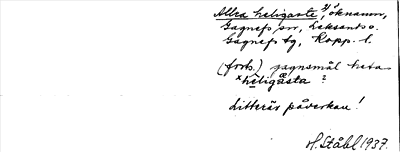 Allra heligaste, öknamn,
Gagnefs sn, Leksands o.
Gagnefs tg, Kopp. l.
(forts.) gagnsmål heta
×heligåsta ?
ditterär påverkan!
H. Ståhl 1937.